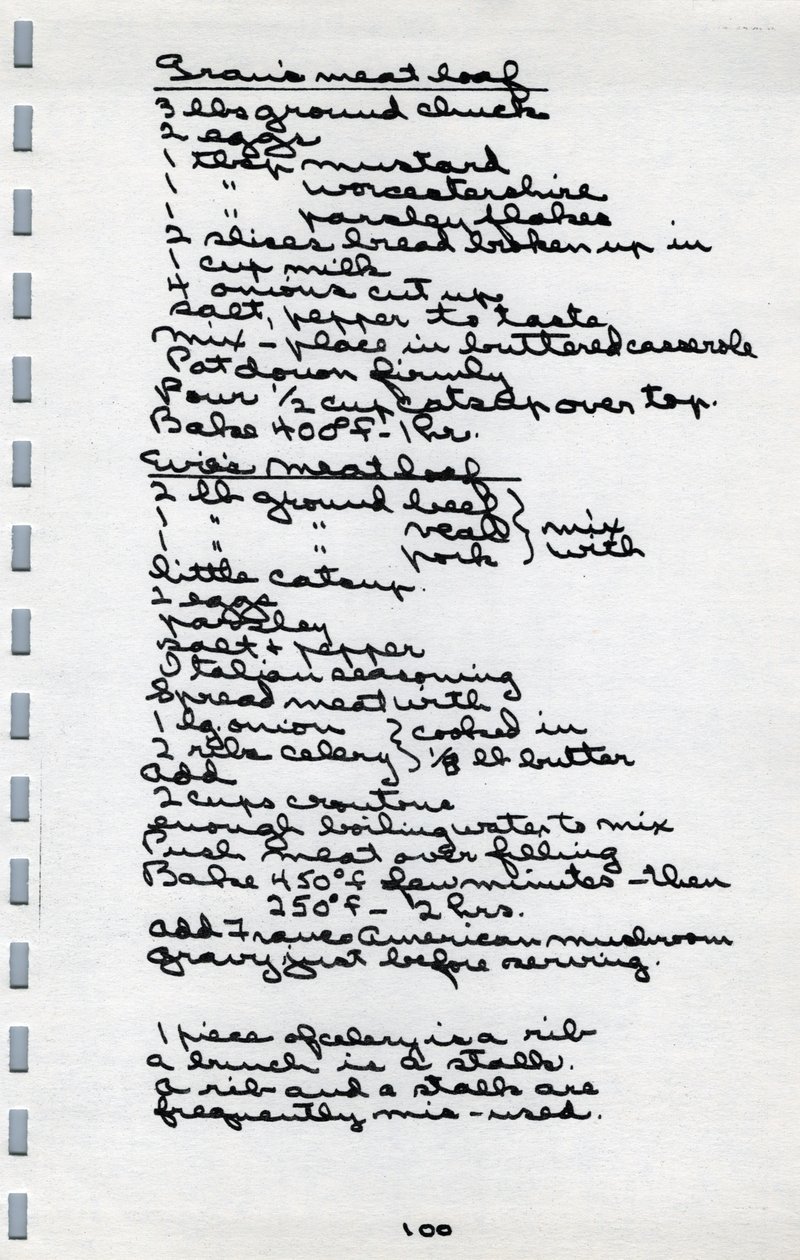 Gran's meat loaf
3 lbs ground chuck
2 eggs
1 tbsp mustard
1 " worcestershire
1 " parsley flakes
2 slices bread broken up in
1 cup milk
4 onions cut up
salt, pepper to taste
Mix - place in buttered casserole
Pat down firmly
Pour 1/2 cup catsup over top.
Bake 400°F - 1 hr.
Evie's Meat loaf
2 lb ground beef
1 " " veal } mix
1 " " pork } with
little catsup.
2 eggs
parsley
salt + pepper
Italian seasoning
Spread meat with
1 lg. onion } cooked in
2 ribs celery } 1/8 lb butter
add
2 cups croutons
enough boiling water to mix
Push meat over filling
Bake 450°F few minutes - then
250°F - 2 hrs.
add Franco American mushroom
gravy just before serving.
1 piece of celery is a rib
a bunch is a stalk.
a rib and a stalk are
frequently mis-used.
100